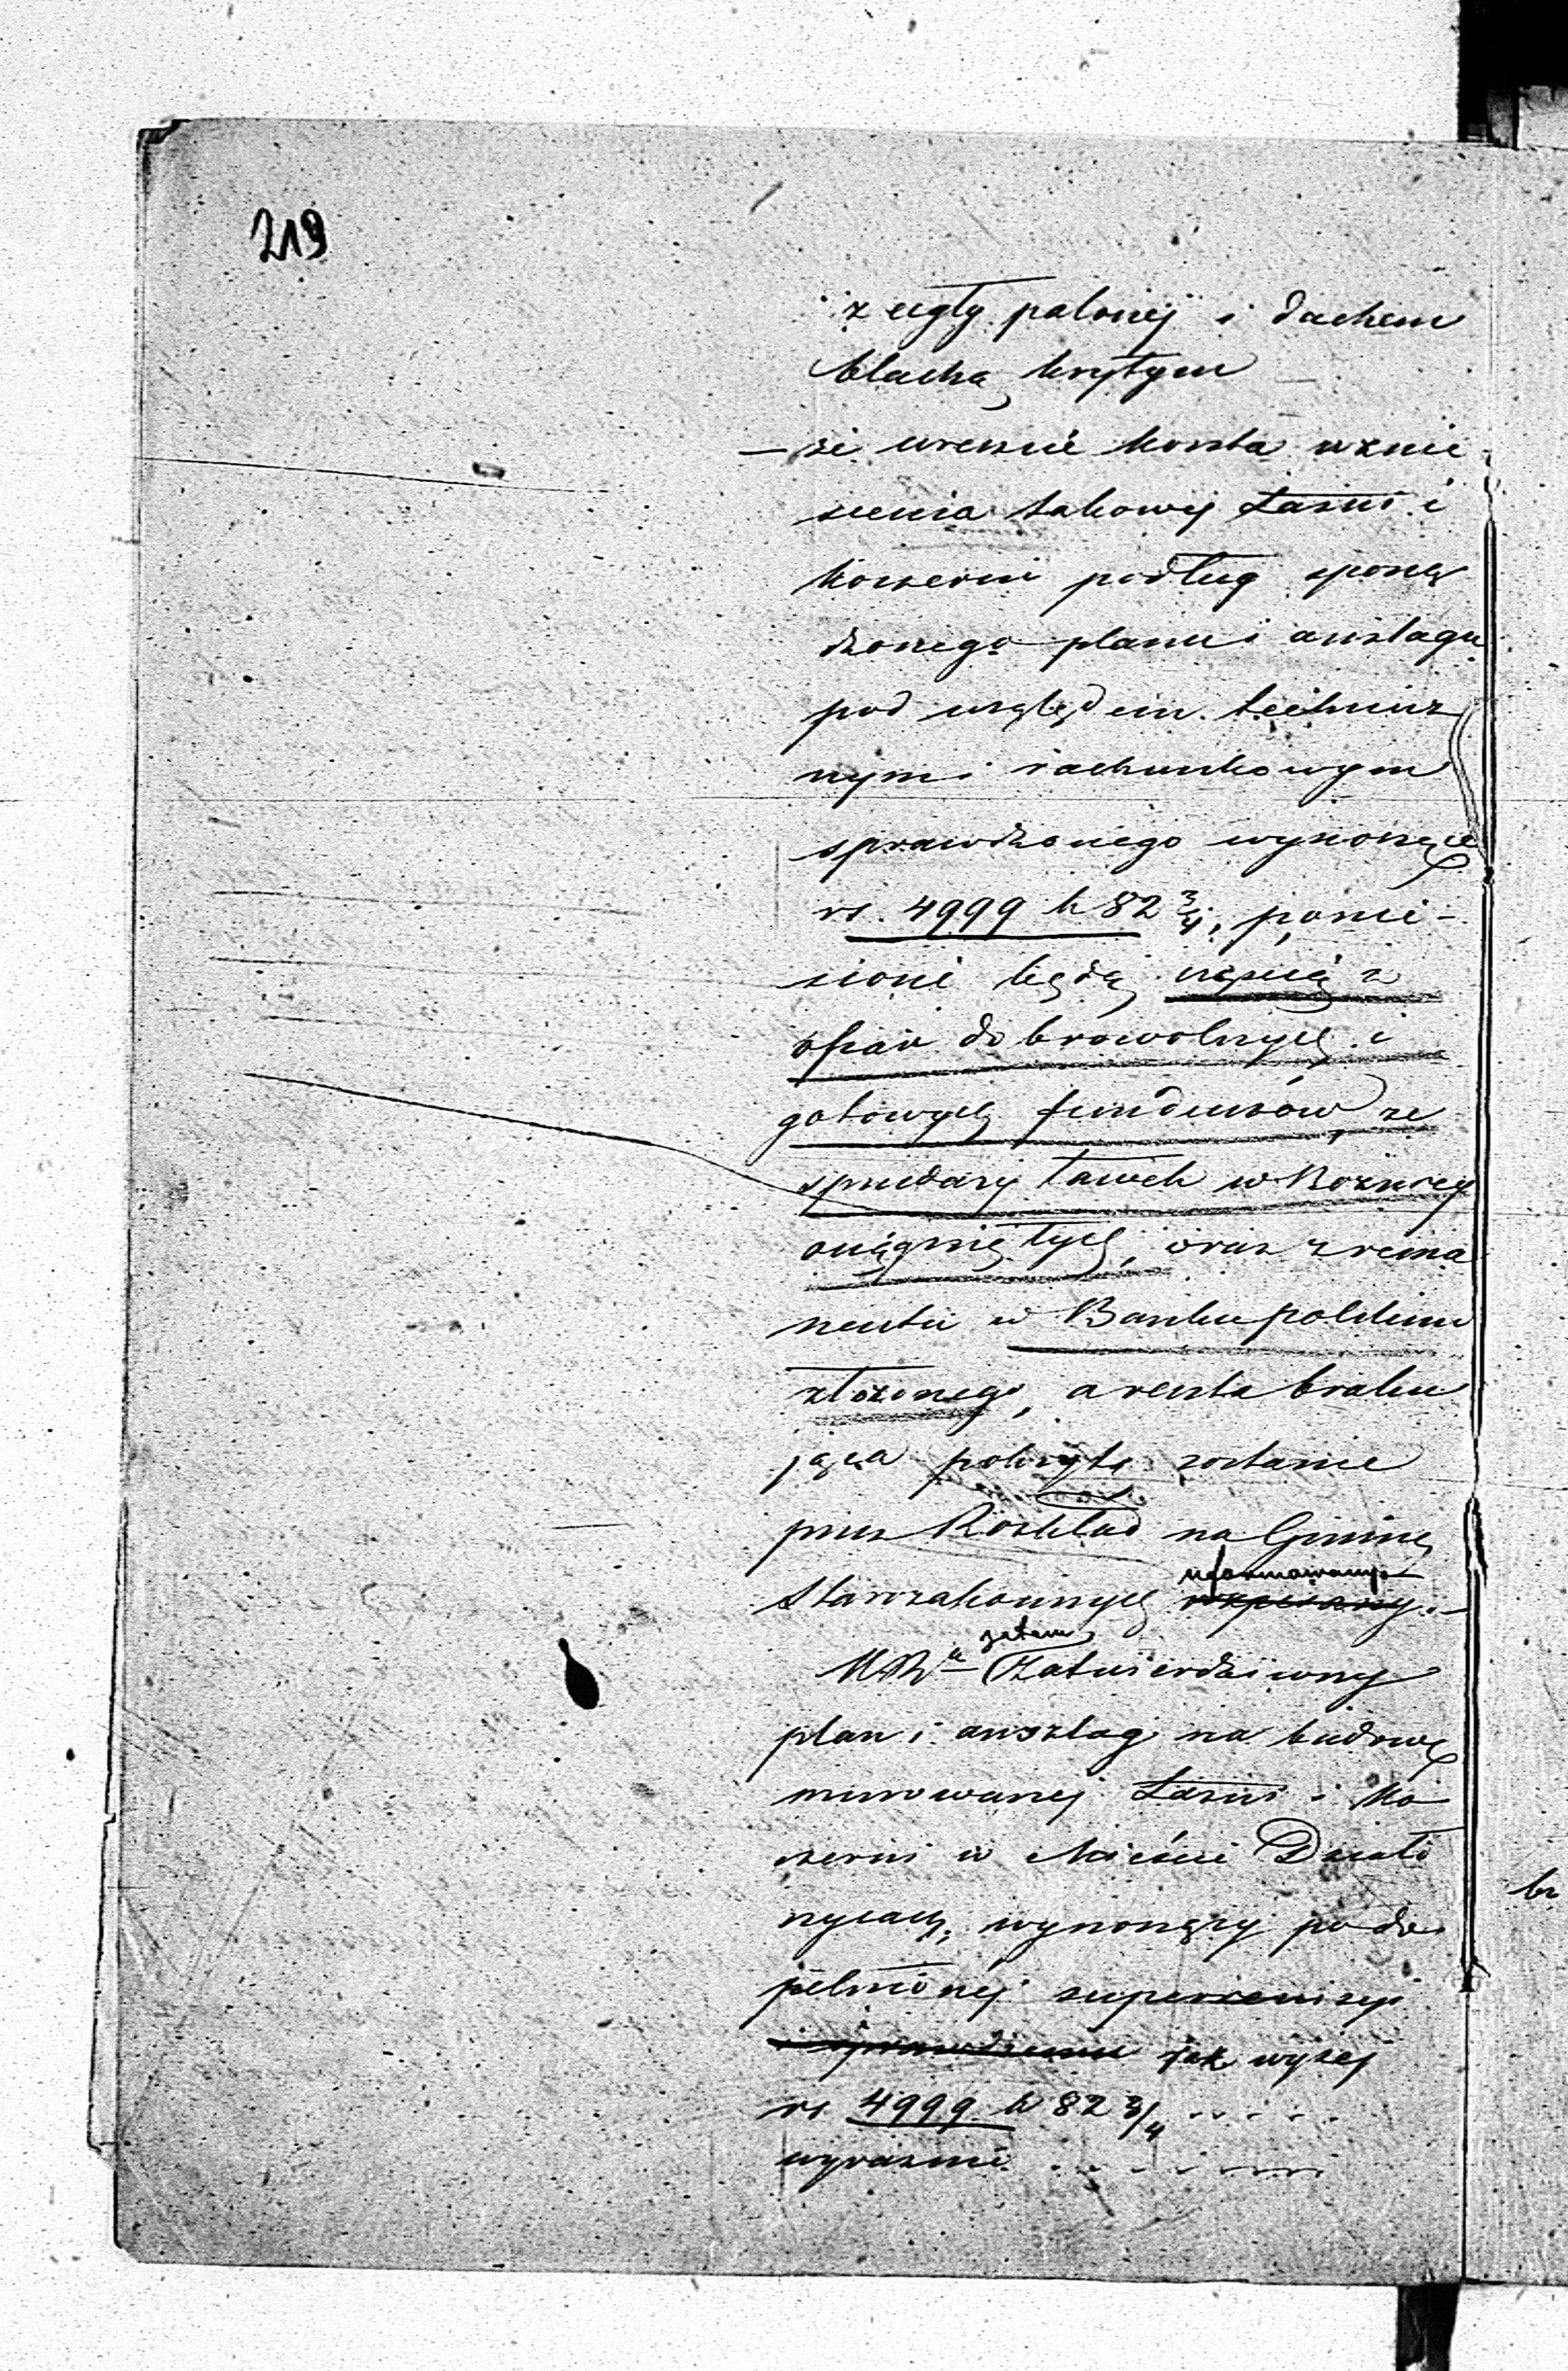 219
z cegły palonej i dachem
blachą krytym
— że wreszcie koszta wznie
sienia takowej Łaźni i
koszerni podług sporzą
dzonego planu i anszlagu
pod względem technicz
nym i rachunkowym
sprawdzonego wynoszące
rs. 4999 k 82 3/4, ponie-
sione będą częścią z
ofiar dobrowolnych i
gotowych funduszów ze
sprzedaży ławek w Bożnicy
osiągniętych, oraz z rema
nentu w Banku polskim
złożonego, a reszta braku
jąca pokrytą zostanie
przez Rozkład na Gminę
Starozakonnych uformowany
zatem
Zatwierdziwszy
plan i anszlag na budowę
murowanej Łaźni i Ko
szerni w Mieście Działo
szycach, wynoszący po do
pełnionej superrewizyi
i sprawdzeniu jak wyżej
rs. 4999 k 82 3/4 . . . . .
wyraźnie . . . . . . .